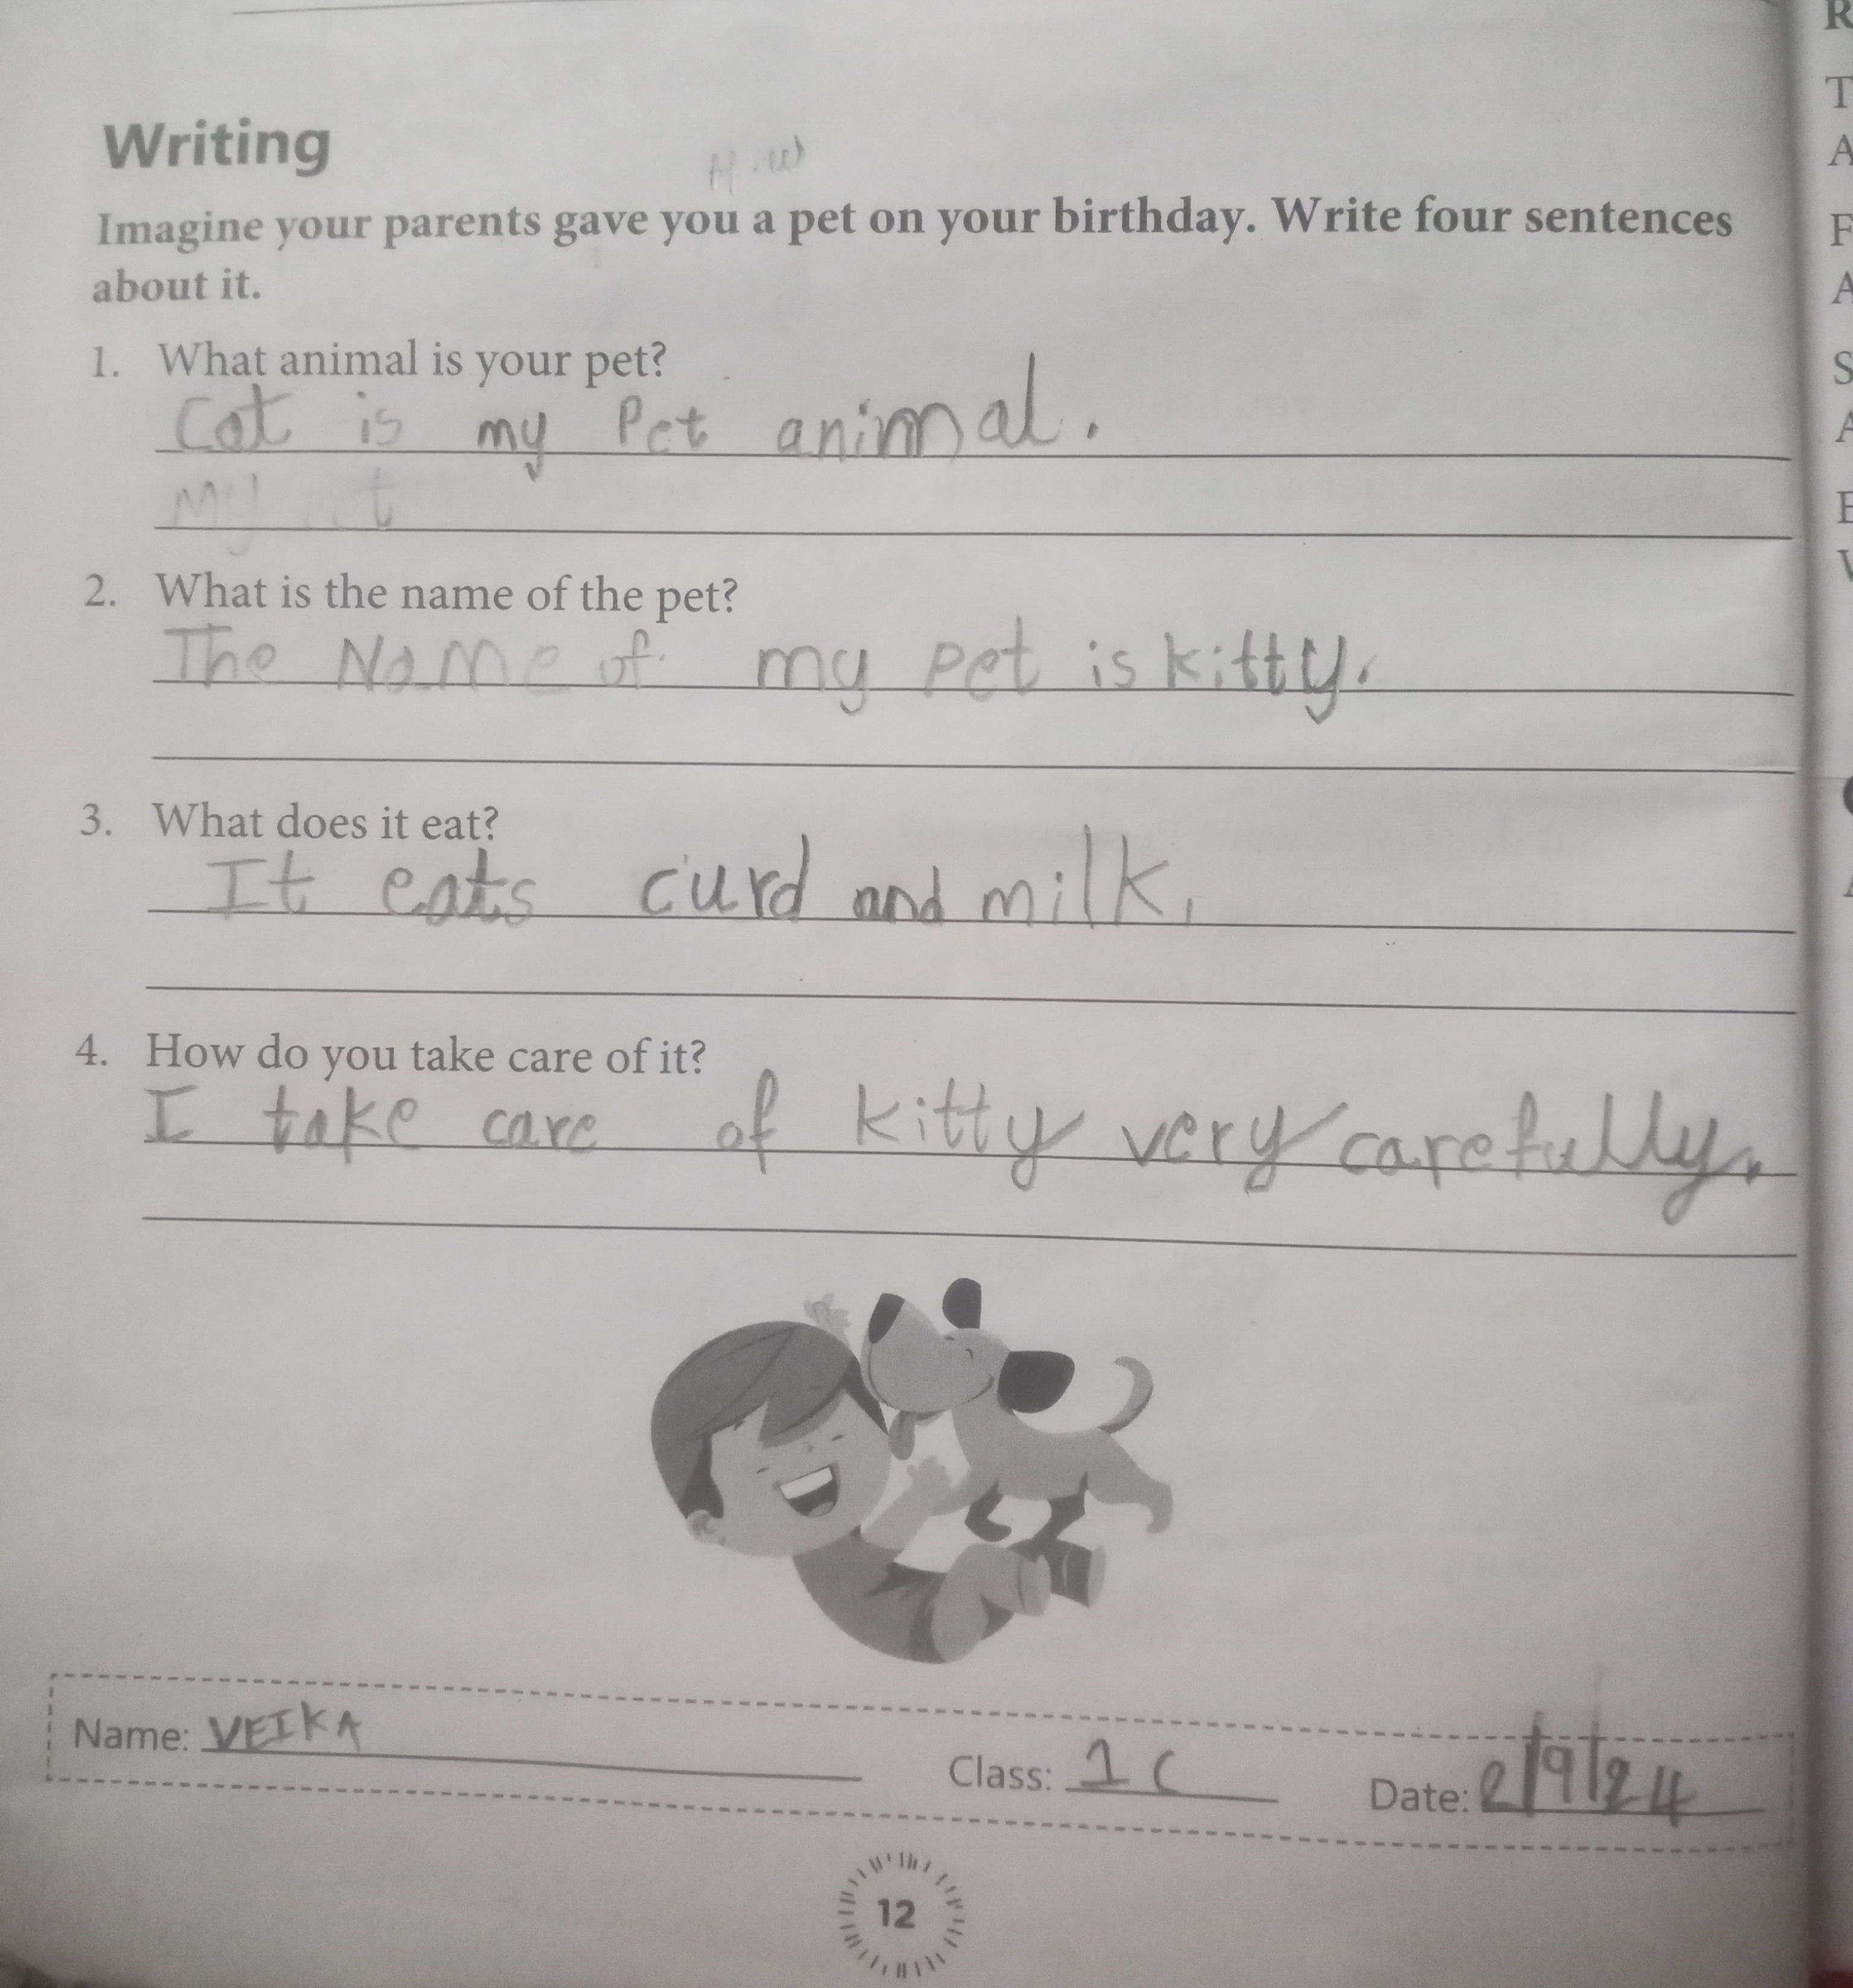 Writing
H.W
Imagine your parents gave you a pet on your birthday. Write four sentences
about it.
1. What animal is your pet?
Cat is my Pet animal.
My pet
2. What is the name of the pet?
The Name of my pet is kitty.
3. What does it eat?
It eats curd and milk.
4. How do you take care of it?
I take care of kitty very carefully.
Name: VEIKA Class: 1 C Date: 2/9/24
12
R
T
A
F
A
S
A